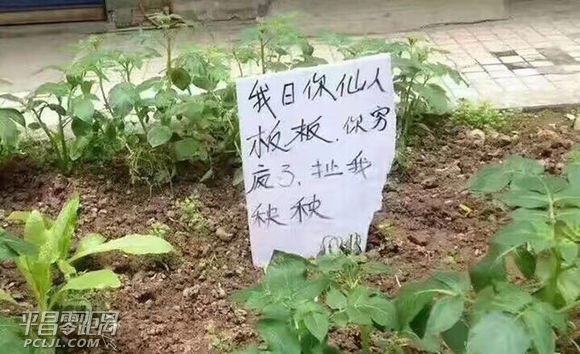 我日你仙人
板板,你穷
疯了,扯我
秧秧
平昌零距离
PCLJL.COM